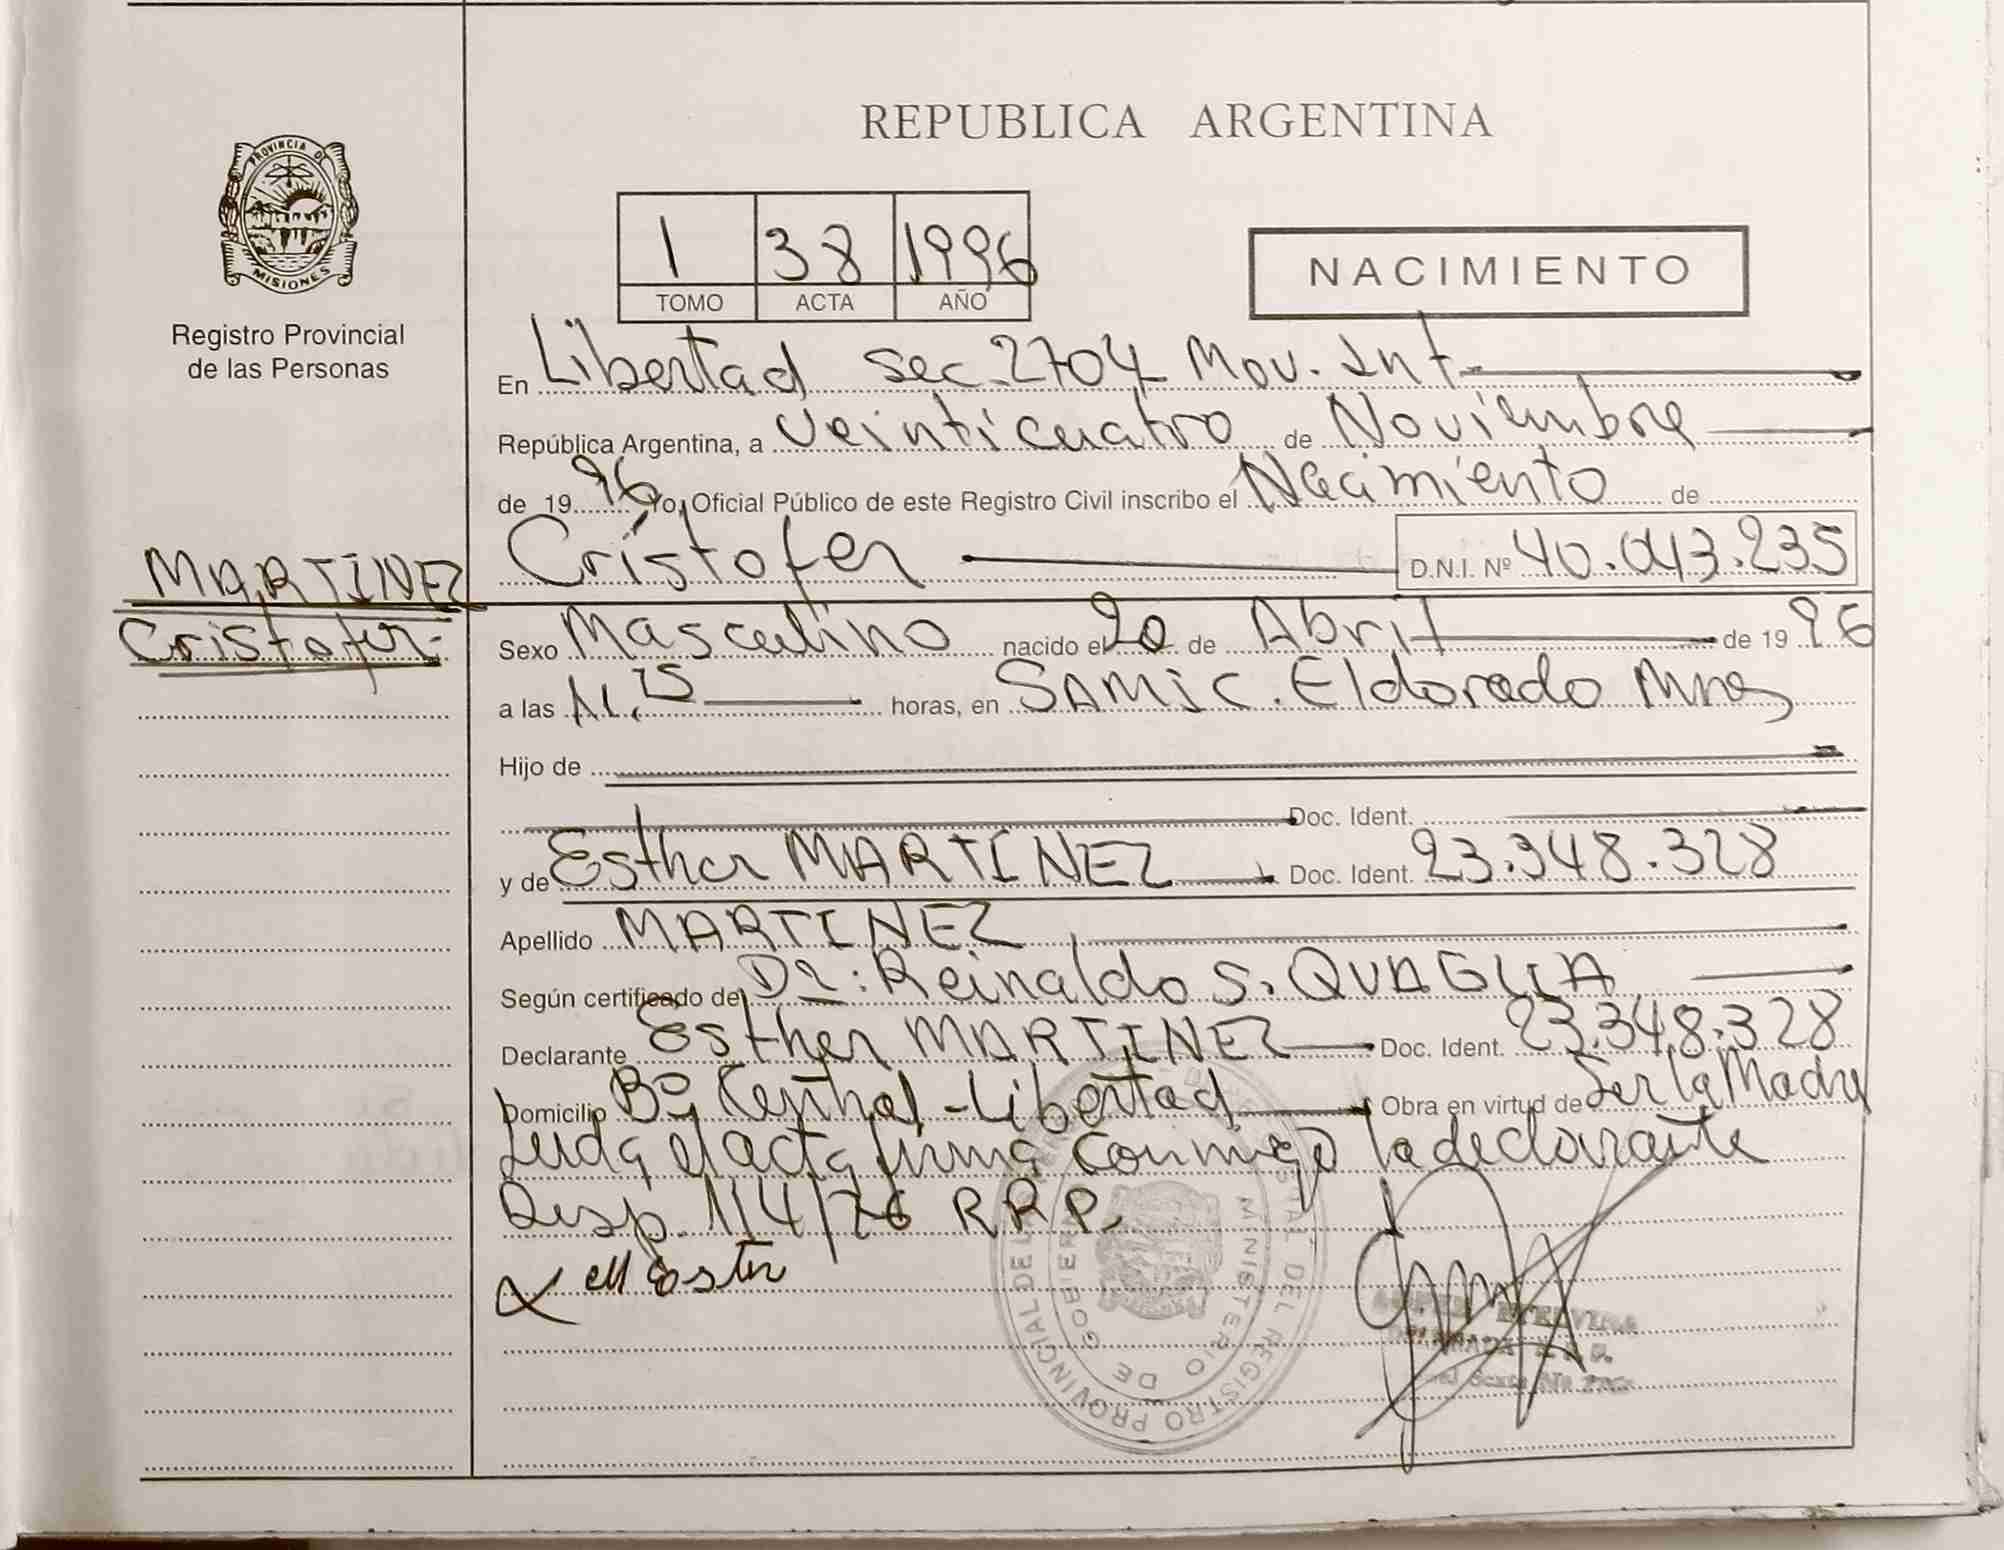 REPUBLICA ARGENTINA
PROVINCIA DE
MISIONES
Registro Provincial
de las Personas
1 38 1996
TOMO ACTA AÑO
NACIMIENTO
En Libertad sec. 2704 Mov. Int.
República Argentina, a veinticuatro de Noviembre
de 1996 Yo, Oficial Público de este Registro Civil inscribo el Nacimiento de
MARTINEZ
Cristofer.
Cristofer D.N.I. Nº 40.043.235
Sexo Masculino nacido el 20 de Abril de 1996
a las 11,15 horas, en SAMiC. Eldorado Mnes
Hijo de
Doc. Ident.
y de Esther MARTINEZ Doc. Ident. 23.348.328
Apellido MARTINEZ
Según certificado de Dr: Reinaldo S. QUAGLIA
Declarante Esther MARTINEZ Doc. Ident. 23.348.328
Domicilio Bº Central - Libertad Obra en virtud de Ser la Madre
Leida el acta firma conmigo la declarante
Disp. 114/76 R.R.P.
REGISTRO PROVINCIAL DE
MINISTERIO DE GOBIERNO